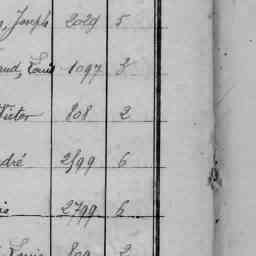 Joseph 2029 5
aud, Louis 1097 3
Victor 808 2
dré 2599 6
2799 6
Louis 809 2